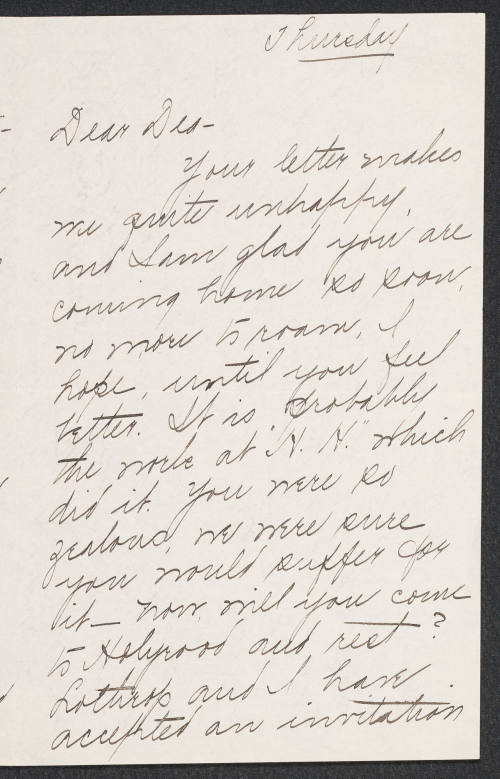 Thursday
Dear Dea-
Your letter makes
me quite unhappy,
and I am glad you are
coming home so soon,
no more to roam, I
hope, until you feel
better. It is probably
the work at "N. N." which
did it. You were so
zealous, we were sure
you would suffer for
it- Now, will you come
to Holyrood and rest?
Lothrop and I have
accepted an invitation